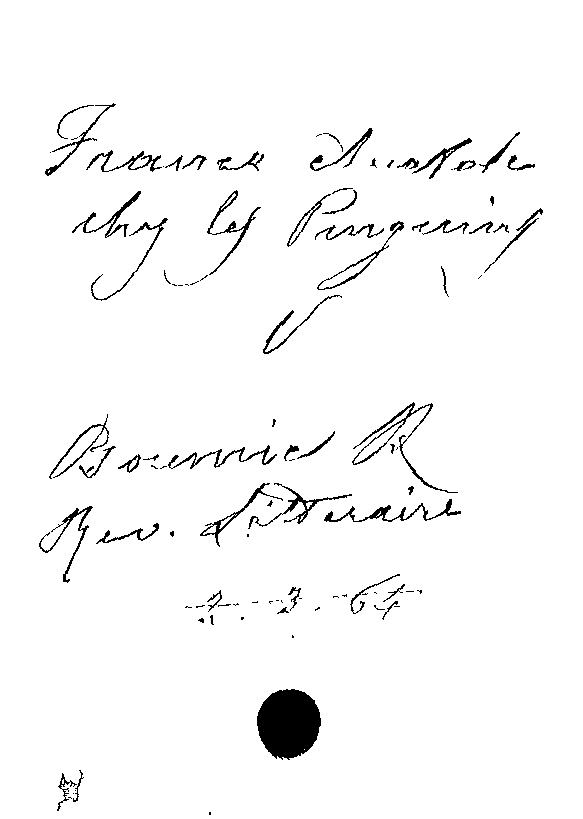 France Anatole
chez les Pinguins
Doumic R
Rev. Littéraire
2.3.64